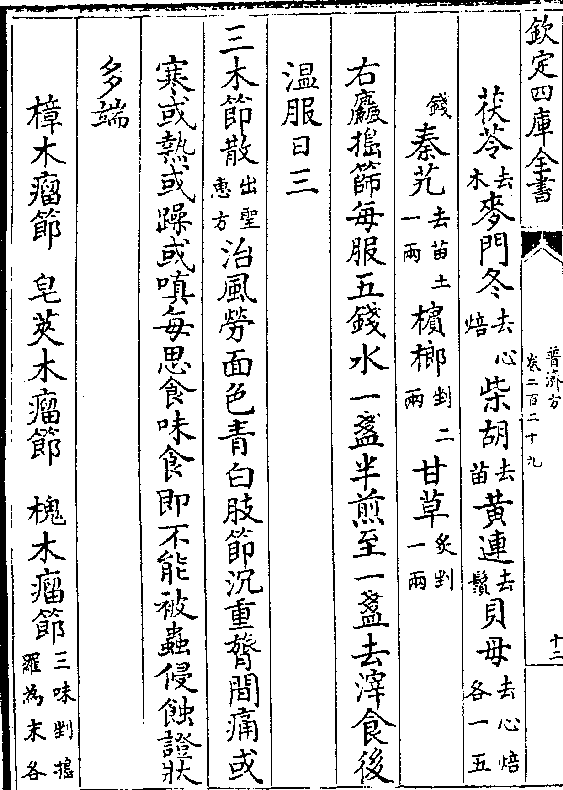 欽定四庫全書
普濟方
卷二百二十九
十二
茯苓去木麥門冬去心焙柴胡去苗黃連去鬚貝母去心焙各一五
錢秦艽去苗土一兩檳榔剉二兩甘草炙剉一兩
右麤搗篩每服五錢水一盞半煎至一盞去滓食後
温服日三
三木節散出聖惠方治風勞面色青白肢節沉重膂間痛或
寒或熱或躁或嗔每思食味食即不能被蟲侵蝕證狀
多端
樟木瘤節 皂莢木瘤節 槐木瘤節三味剉搗羅為末各